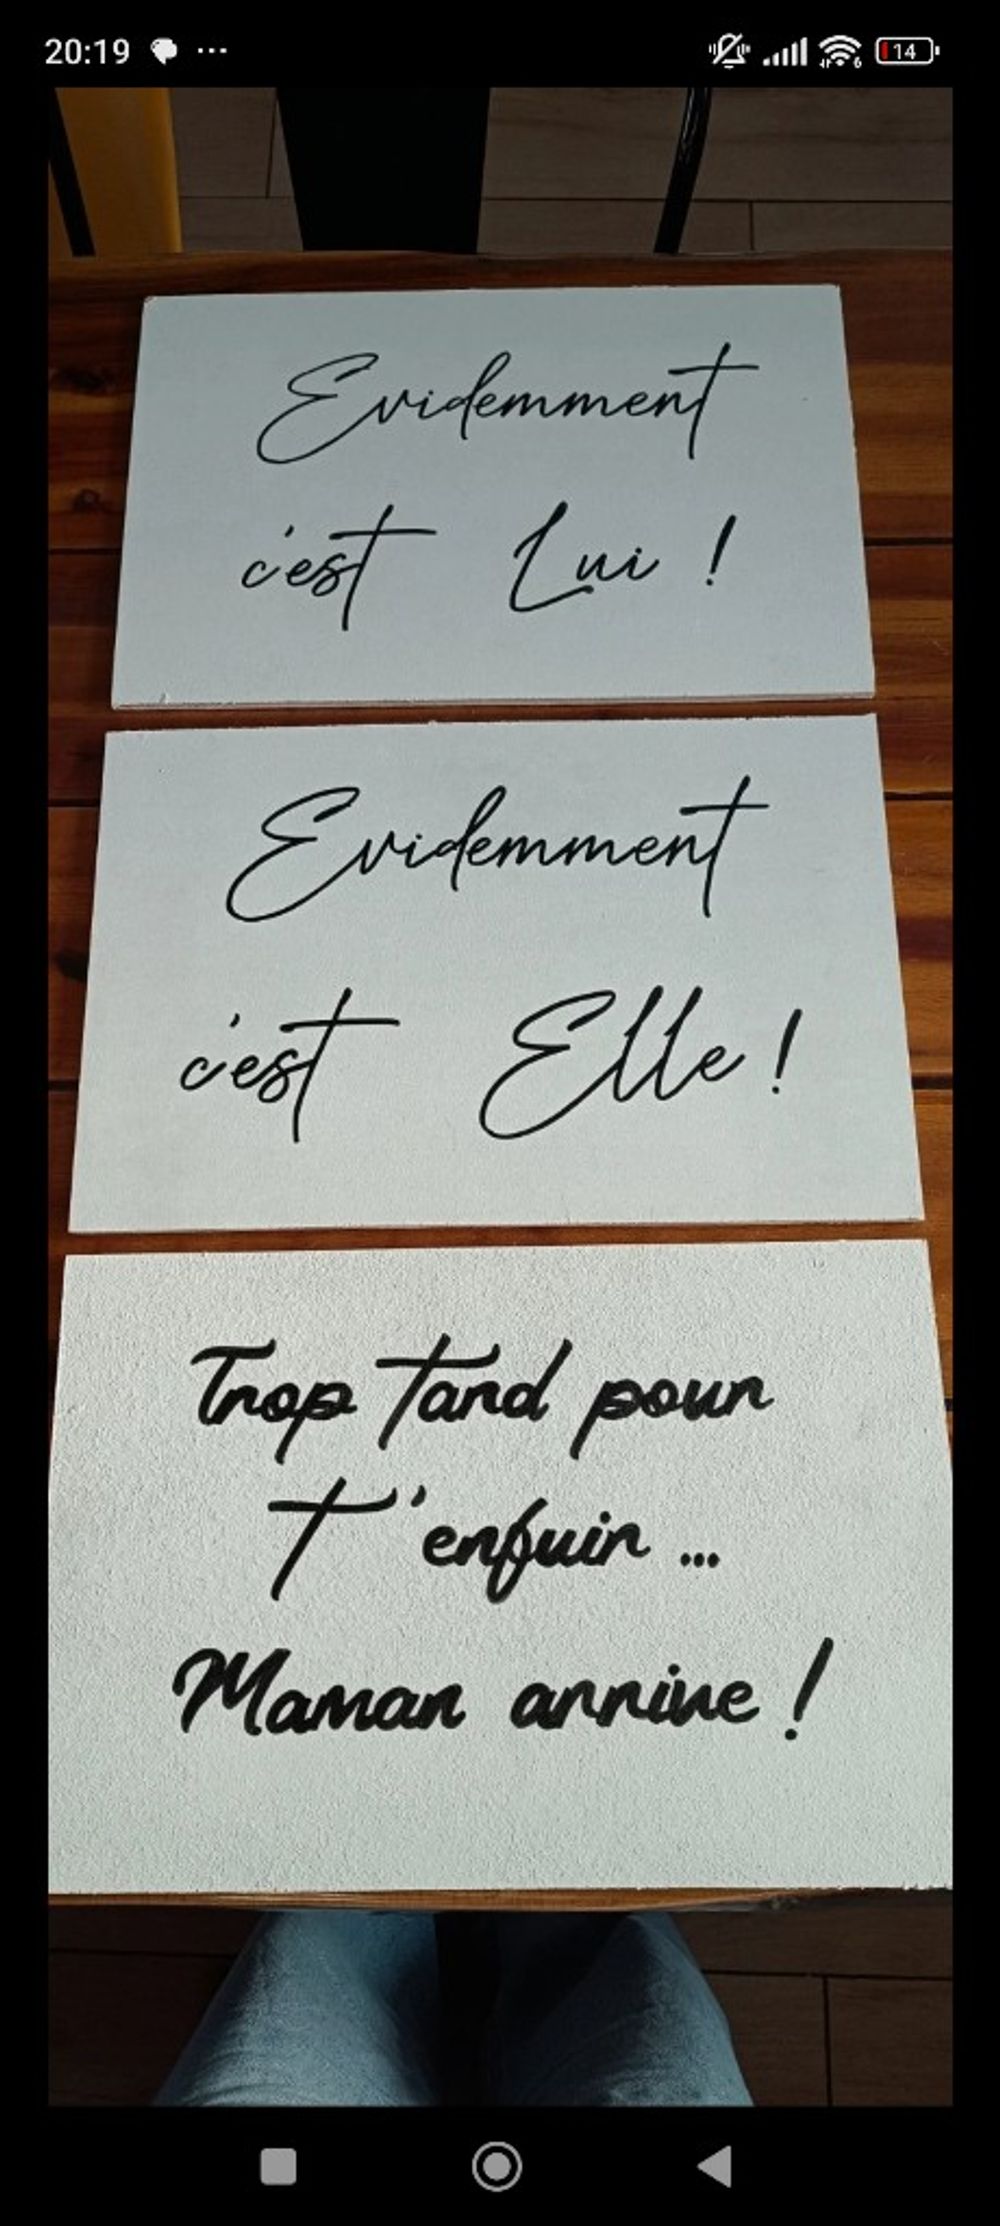 20:19
14
Evidemment
c'est Lui !
Evidemment
c'est Elle !
Trop tard pour
T'enfuir ...
Maman arrive !